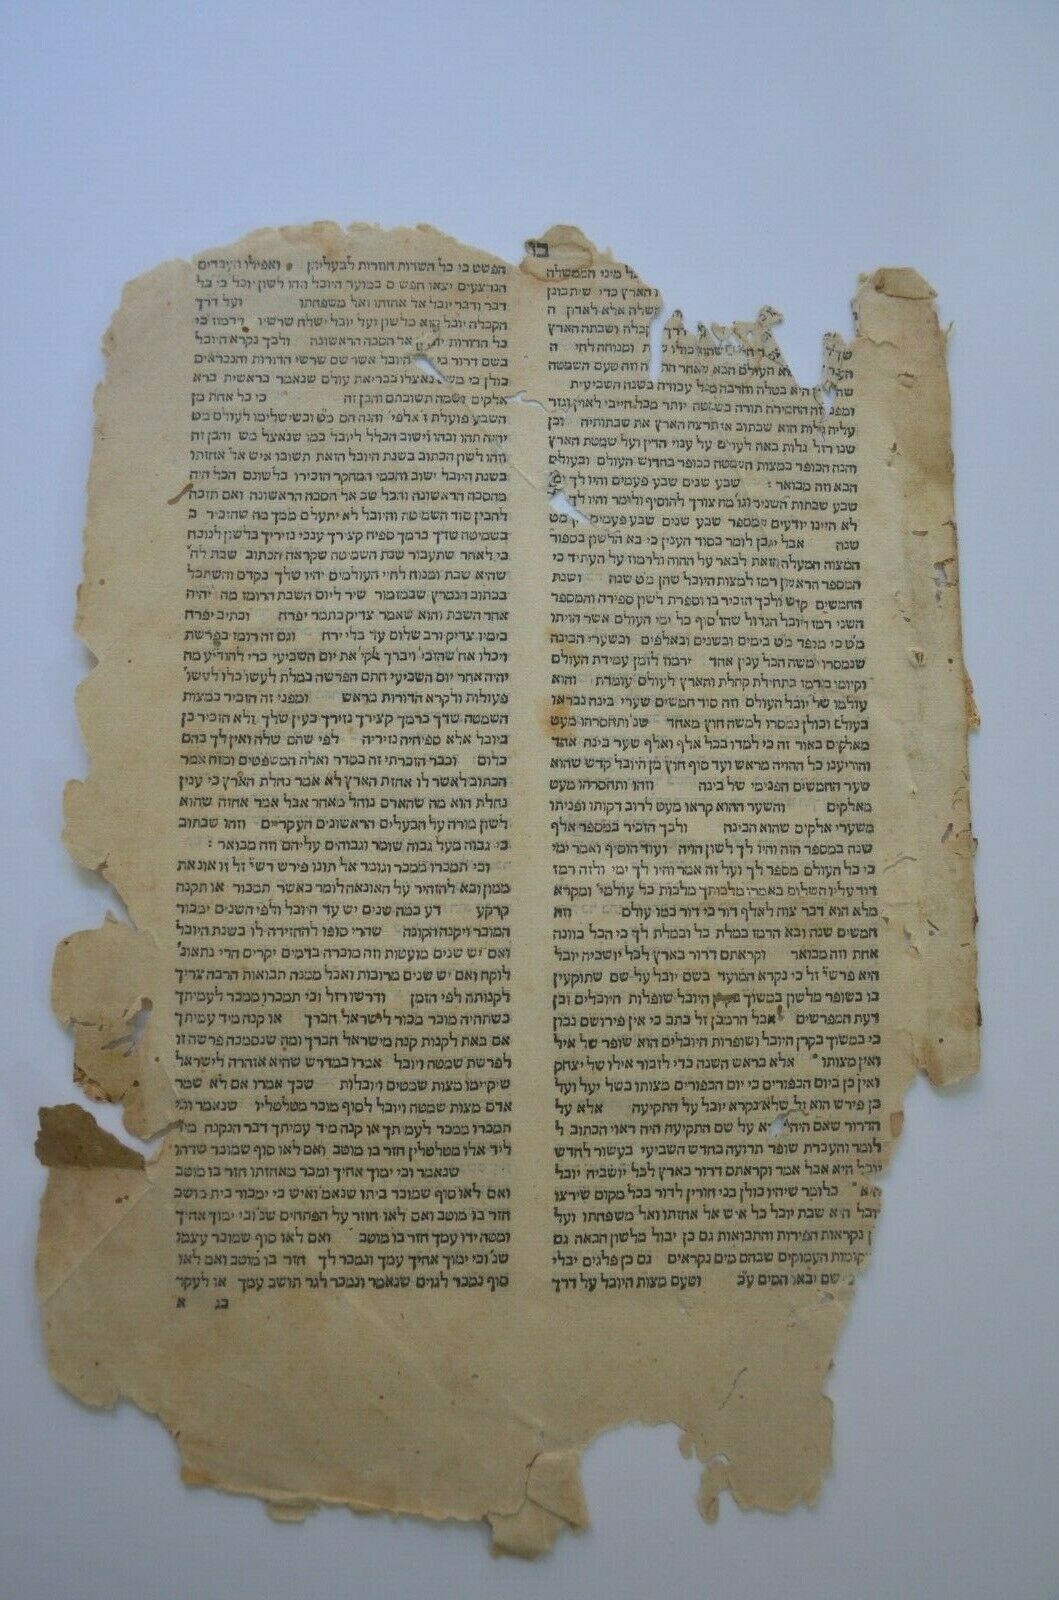 בו
ל מיני הממשלה
והארץ כדי שיתכונן
שלה אלא לאדון ה
דרך קבלה ושבתה הארץ
שהוא כולו ומנוחה לחיי ה
הוא העולם הבא שאחר וזה טעם השמטה
היא בטלה וחרבה מכל עבודה בשנה השביעית
זה החמירה תורה בשמטה יותר מכל חייבי לאוין וגזר
עליה גלות הוא שכתוב אז תרצה הארץ את שבתותיה וכן
שנו רזל גלות באה לעולם על ענוי הדין ועל שמטת הארץ
והנה הכופר במצות השמטה ככופר בחדוש העולם ובעולם
הבא וזה מבואר : שבע שנים שבע פעמים והיו לך ימי
שבע שבתות השנים צורך להוסיף ולומר והיו לך
לא היינו יודעים מספר שבע שנים שבע פעמים מט
שנה אבל יתכן לומר בסוד הענין כי בא הלשון בספור
המצוה המעלה הזאת לבאר על ההוה ולרמוז על העתיד כי
המספר הראשון רמז למצות היובל שהן מט שנה ושנת
החמשים קדש ולכך הזכיר בו וספרת לשון ספירה והמספר
השני רמז ליובל הגדול שהוא סוף כל ימי העולם אשר הויתו
מט כי מנפר מט בימים ובשנים ובאלפים וכשערי הבינה
שנמסרו למשה הכל ענין אחד ירמוז לזמן עמידת העולם
וקיומו כרמז בתחילת קהלת והארץ לעולם עומדת והוא
עולמו של יובל העולם וזה סוד חמשים שערי בינה נבראו
בעולם וכולן נמסרו למשה חוץ מאחד שנ' ותחסרהו מעט
מאלקים באור זה כי למדו בכל אלף ואלף שער בינה אחד
והודיענו כל ההויה מראש ועד סוף חוץ מן היובל קדש שהוא
שער החמשים הפנימי של בינה וזהו ותחסרהו מעט
מאלקים והשער ההוא קראו מעט לרוב דקותו ופנימיותו
משערי אלקים שהוא הבינה ולכך הזכיר במספר אלף
שנה במספר הזה והיו לך לשון הויה ועוד הוסיף ואמר ימי
כי כל העולם מספר לך ועל זה אמר והיו לך ימי ולזה רמז
דוד עליו השלום באמרו מלכותך מלכות כל עולמי' ומקרא
מלא הוא דבר צוה לאלף דור כי דור כמו עולם וזה
חמשים שנה ובא הרמז במלת כל ובמלת לך כי הכל בוונה
אחת וזה מבואר וקראתם דרור בארץ לכל יושביה יובל
היא פרש"י זל כי נקרא המועד בשם יובל על שם שתוקעין
בו בשופר מלשון במשוך בקרן היובל שופלות היובלים וכן
דעת המפרשים אבל הרמבן זל כתב כי אין פירושם נכון
כי במשוך בקרן היובל ושופרות היובלים הוא שופר של איל
ואין מצותו אלא בראש השנה כדי לזכור אילו של יצחק
ואין כן ביום הכפורים כי יום הכפורים מצותו בשל יעל ועל
כן פירש הוא זל שלא נקרא יובל על התקיעה אלא על
הדרור שאם היה על שם התקיעה היה ראוי הכתוב ל
לומר והעברת שופר תרועה בחדש השביעי בעשור לחדש
יובל היא אבל אמר וקראתם דרור בארץ לכל יושביה יובל
היא כלומר שיהיו כולן בני חורין לדור בכל מקום שירצו
יובל היא שבת יובל כל איש אל אחוזתו ואל משפחתו ועל
נקראות הפירות והתבואות גם כן יבול מלשון הבאה גם
המקומות העמוקים שבהם מים נקראים גם כן פלגים יבלי
שם יבאו המים ע"כ וטעם מצות היובל על דרך
הפשט כי כל השדות חוזרות לבעליהן ואפילו העבדים
הנרצעים יצאו חפשים במועד היובל וזהו לשון יובל כי כל
דבר ודבר יובל אל אחזתו ואל משפחתו ועל דרך
הקבלה יובל הוא מלשון ועל יובל ישלח שרשיו לרמוז כי
כל הדורות אל הסבה הראשונה ולכך נקרא היובל
בשם דרור כי היובל אשר שם שרשי הדורות והנבראים
כולן כי משם נאצלו בבריאת עולם שנאמר בראשית ברא
אלקים ושמה תשובתם והבן זה כי כל אחת מן
השבע פועלת ז' אלפי' והנה הם מט ובשישלימו לעולם מט
יהיה תהו ובהו וישוב הכלל ליובל כמו שנאצל משם והבן זה
וזהו לשון הכתוב בשנת היובל הזאת תשובו איש אל אחזתו
בשנת היובל ישוב וחכמי המחקר הזכירו בלשונם הכל היה
מהסבה הראשונה והכל שב אל הסבה הראשונה ואם תזכה
להבין סוד השמיטה והיובל לא יתעלם ממך מה שהזכיר ב
בשמיטה שדך כרמך ספיח קצירך ענבי נזיריך בלשון לנוכח
כי לאחר שתעבור שנת השמיטה שקראה הכתוב שבת לה'
שהיא שבת ומנוח לחיי העולמים יהיו שלך כקדם והשתכל
בכתוב הנמרץ שבמזמור שיר ליום השבת הרומז מה יהיה
אחר השבת והוא שאמר צדיק כתמר יפרח וכתיב יפרח
בימיו צדיק ורב שלום עד בלי ירח וגם זה רומז בפרשת
ויכלו אחר שהזכיר ויברך אלקי' את יום השביעי כדי להודיע מה
יהיה אחר יום השביעי חתם הפרשה במלת לעשו' כלו לעשו'
פעולות ולקרא הדורות מראש ומפני זה הזכיר במצות
השמטה שדך כרמך קצירך נזירך כעין שלך ולא הזכיר כן
ביובל אלא ספיחיה נזיריה לפי שהם שלה ואין לך בהם
כלום וכבר הזכרתי זה בסדר ואלה המשפטים ומזה אמר
הכתוב לאשר לו אחזת הארץ לא אמר נחלת הארץ כי ענין
נחלת הוא מה שהאדם נוחל מאחר אבל אמר אחזה שהוא
לשון מורה על הבעלים הראשונים העקריים וזהו שכתוב
כי גבוה מעל גבוה שומר וגבוהים עליהם וזה מבואר :
וכי תמכרו ממכר וגומר אל תונו פירש רש"י זל זו אונאת
ממון ובא להזהיר על האונאה לומר כאשר תמכור או תקנה
קרקע דע כמה שנים יש עד היובל ולפי השנים ימכור
המוכר ויקנה הקונה שהרי סופו להחזירה לו בשנת היובל
ואם יש שנים מועטות וזה מוכרה בדמים יקרים הרי נתאונ'
לוקח ואם יש שנים מרובות ואכל ממנה תבואות הרבה צריך
לקנותה לפי הזמן ודרשו רזל וכי תמכרו ממכר לעמיתך
כשתהיה מוכר מכור לישראל חברך או קנה מיד עמיתך
אם באת לקנות קנה מישראל חברך ומה שנסמכה פרשה זו
לפרשת שמטה ויובל אמרו במדרש שהיא אזהרה לישראל
שיקיימו מצות שמטים ויובלות שכך אמרו אם לא שמר
אדם מצות שמטה ויובל לסוף מוכר מטלטליו שנאמר וכי
תמכרו ממכר לעמיתך או קנה מיד עמיתך דבר הנקנה מיד
ליד אלו מטלטלין חזר בו מוטב ואם לאו סוף שמוכר שדהו
שנאמר וכי ימוך אחיך ומכר מאחזתו חזר בו מוטב
ואם לאו סוף שמוכר ביתו שנאמ' ואיש כי ימכור בית מושב
חזר בו מוטב ואם לאו חוזר על הפתחים שנ' וכי ימוך אחיך
ומטה ידו עמך חזר בו מוטב ואם לאו סוף שמוכר עצמו
שנ' וכי ימוך אחיך עמך ונמכר לך חזר בו מוטב ואם לאו
סוף נמכר לגוים שנאמר ונמכר לגר תושב עמך או לעקר
כג א